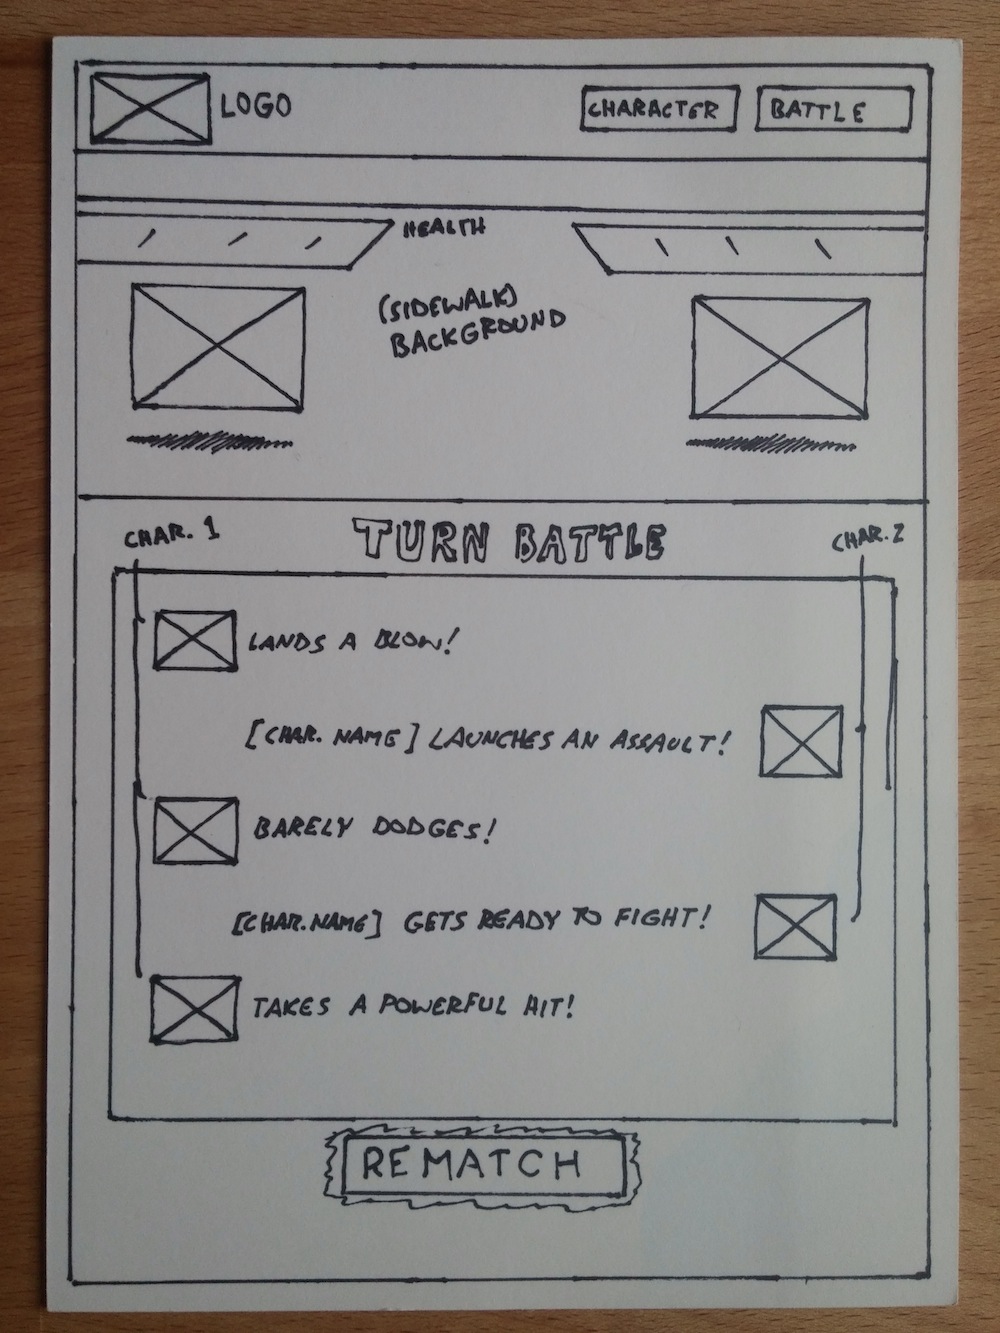 LOGO
CHARACTER
BATTLE
HEALTH
(SIDEWALK)
BACKGROUND
CHAR. 1
TURN BATTLE
CHAR. 2
LANDS A BLOW!
[CHAR. NAME] LAUNCHES AN ASSAULT!
BARELY DODGES!
[CHAR. NAME] GETS READY TO FIGHT!
TAKES A POWERFUL HIT!
REMATCH